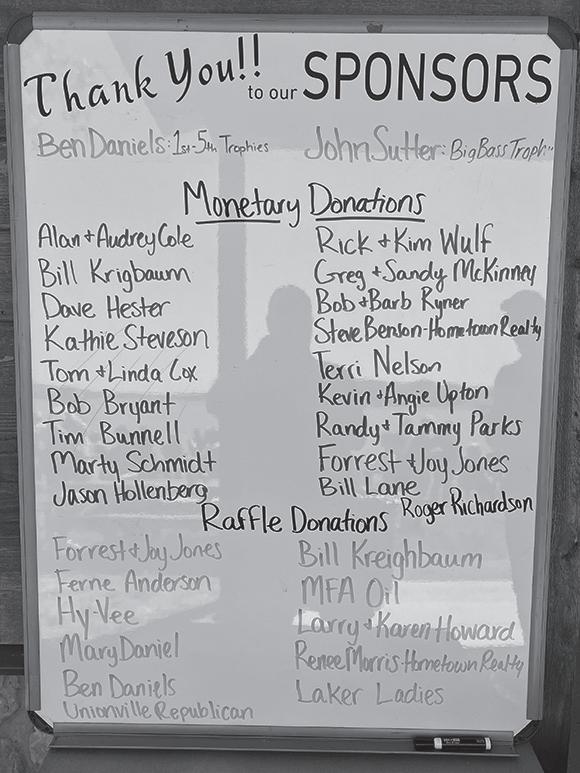 Thank You!! to our SPONSORS
Ben Daniels: 1st-5th Trophies
John Sutter: Big Bass Troph
Monetary Donations
Alan & Audrey Cole
Bill Krigbaum
Dave Hester
Kathie Steveson
Tom & Linda Cox
Bob Bryant
Tim Bunnell
Marty Schmidt
Jason Hollenberg
Rick & Kim Wulf
Greg & Sandy McKinney
Bob & Barb Ryner
Steve Benson-Hometown Realty
Terri Nelson
Kevin & Angie Upton
Randy & Tammy Parks
Forrest & Joy Jones
Bill Lane
Roger Richardson
Raffle Donations
Forrest & Joy Jones
Ferne Anderson
Hy-Vee
Mary Daniel
Ben Daniels
Unionville Republican
Bill Kreighbaum
MFA Oil
Larry & Karen Howard
Renee Morris-Hometown Realty
Laker Ladies